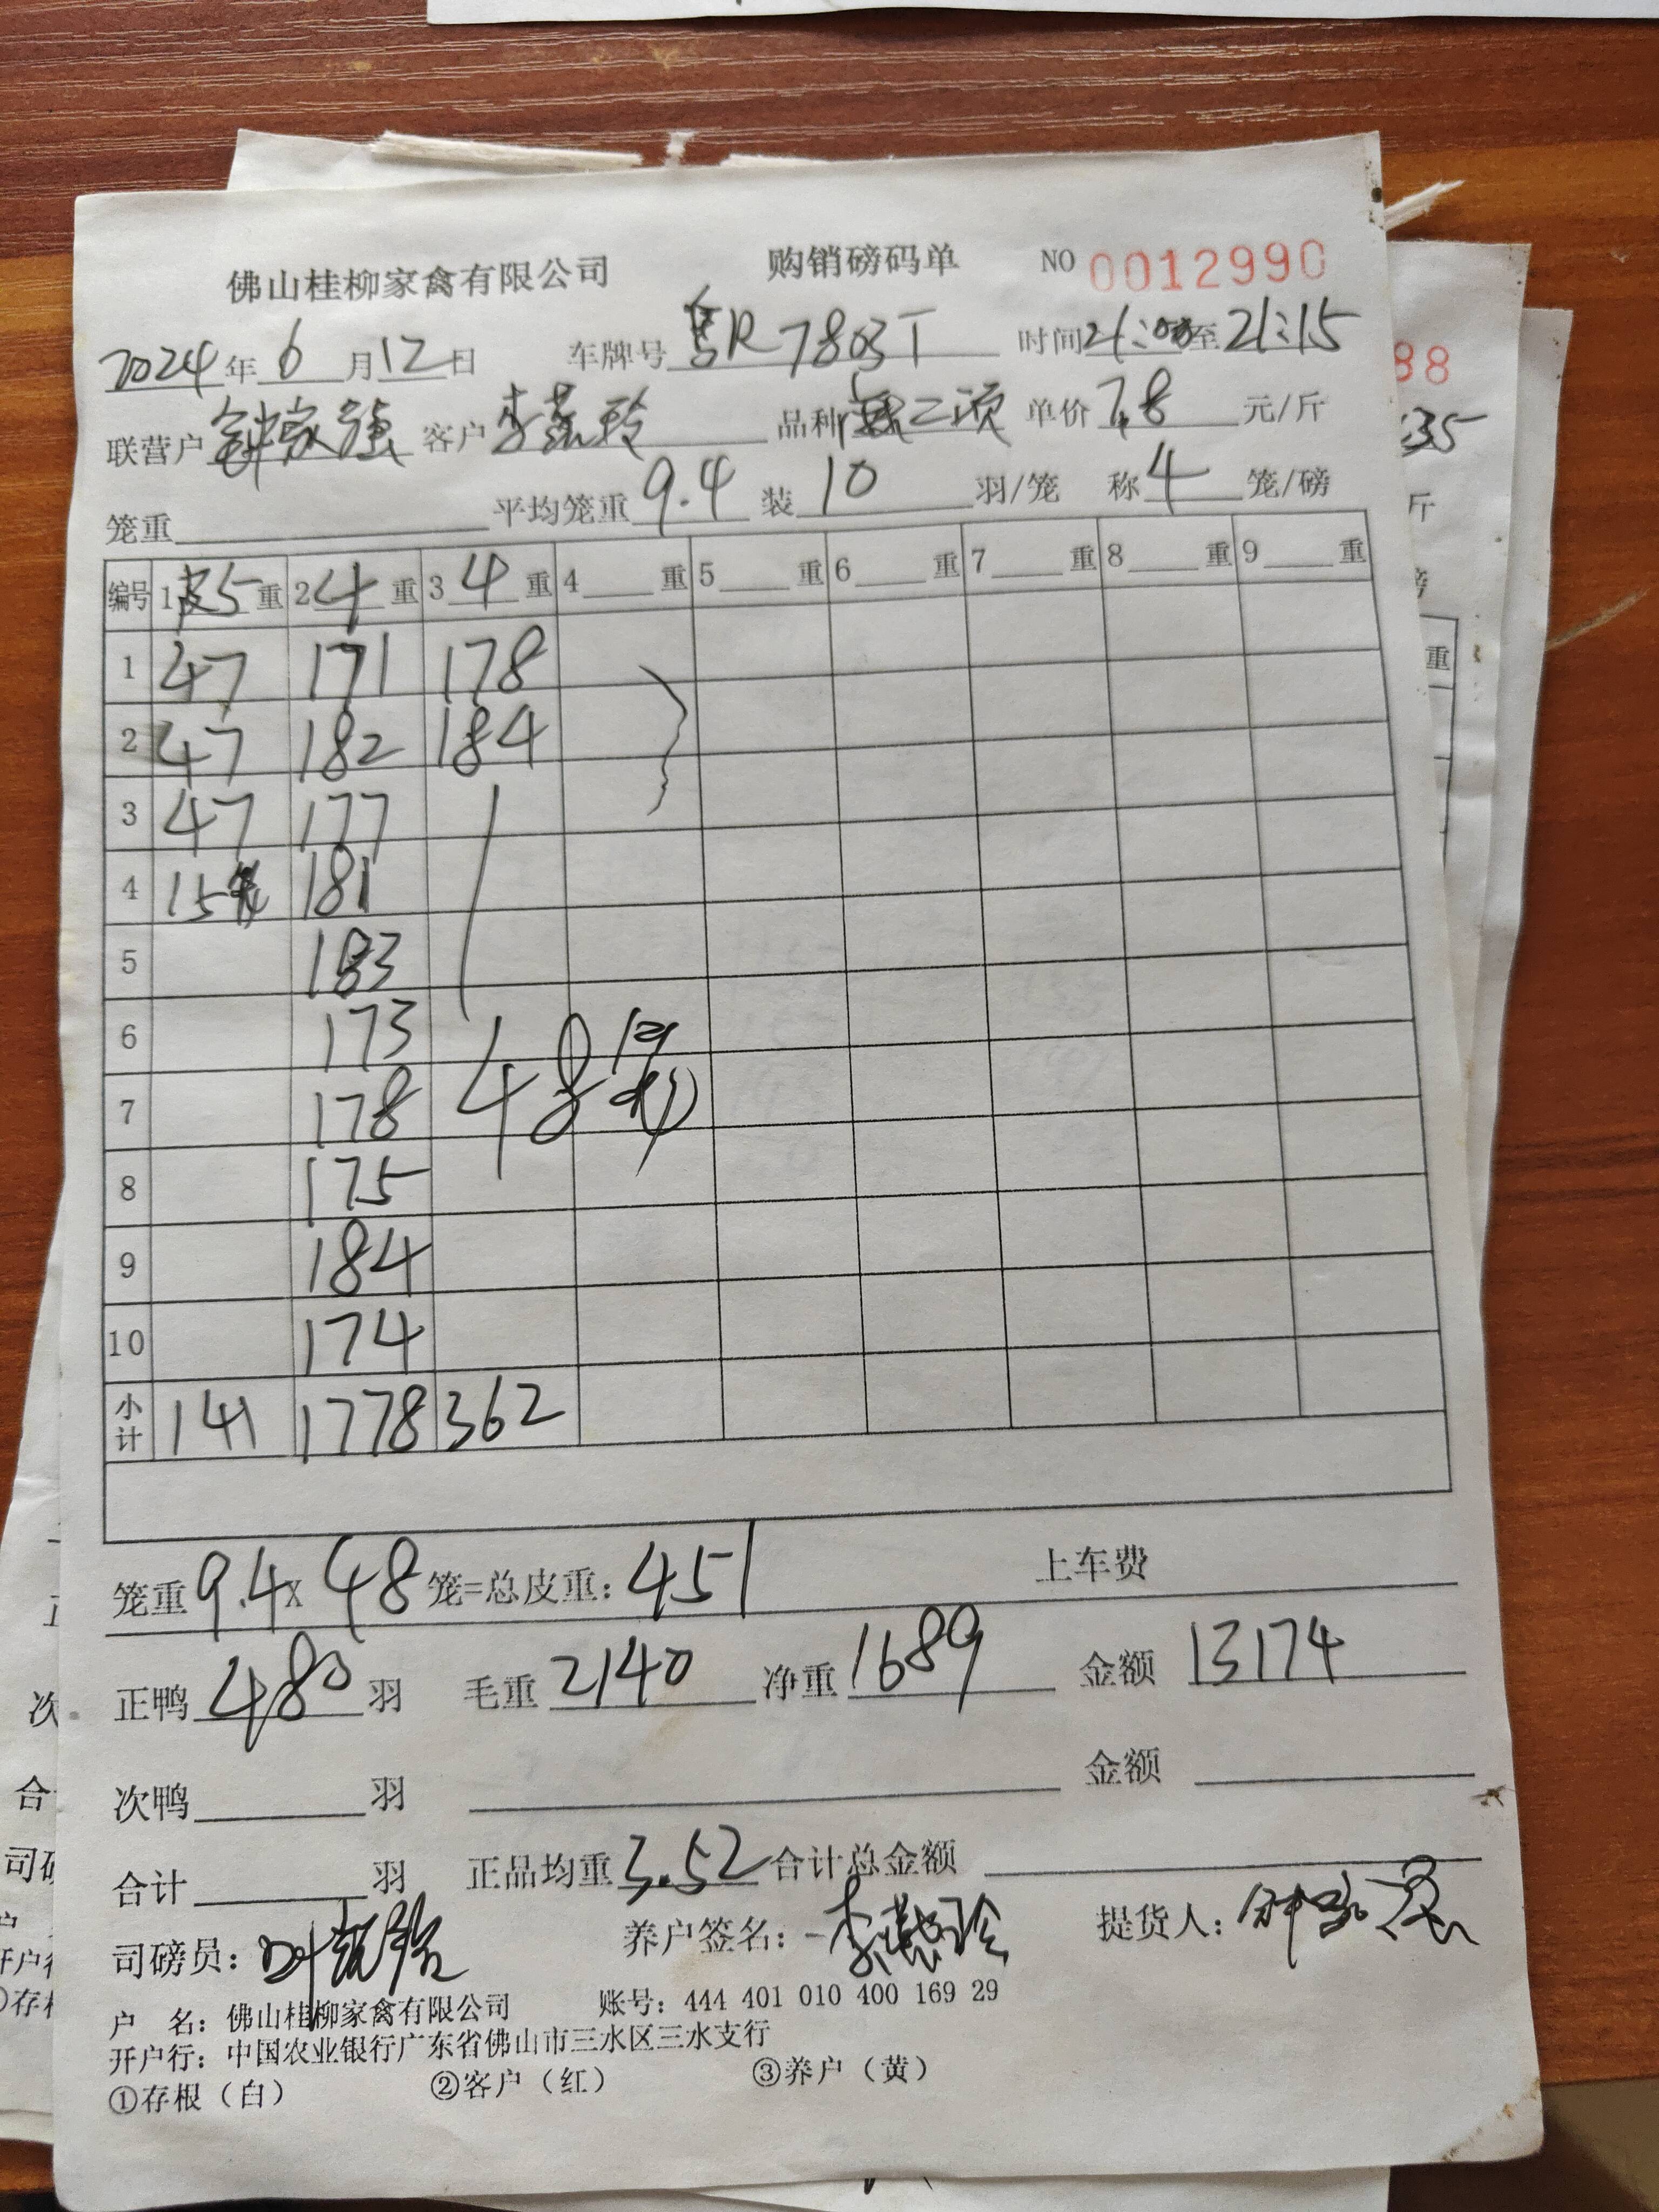 佛山桂柳家禽有限公司 购销磅码单 NO 0012990
2024年6月12日 车牌号 粤R7803T 时间21:00至21:15
联营户 钟家强 客户 李燕玲 品种 二项 单价 7.8 元/斤
笼重 平均笼重 9.4 装 10 羽/笼 称 4 笼/磅
编号 1皮5重 2 4重 3 4重 4 重 5 重 6 重 7 重 8 重 9 重
1 47 171 178
2 47 182 184
3 47 177
4 15笼 181
5 183
6 173
7 178 48
8 175
9 184
10 174
小计 141 1778 362
笼重9.4x48笼=总皮重:451 上车费
正鸭480羽 毛重2140 净重1689 金额 13174
次鸭 羽 金额
合计 羽 正品均重3.52合计总金额
司磅员: 养户签名: 李燕玲 提货人:
户 名:佛山桂柳家禽有限公司 账号:444 401 010 400 169 29
开户行:中国农业银行广东省佛山市三水区三水支行
①存根(白) ②客户(红) ③养户(黄)
88
:35
斤
磅
重
次
合
司磅
户
开户行
①存根